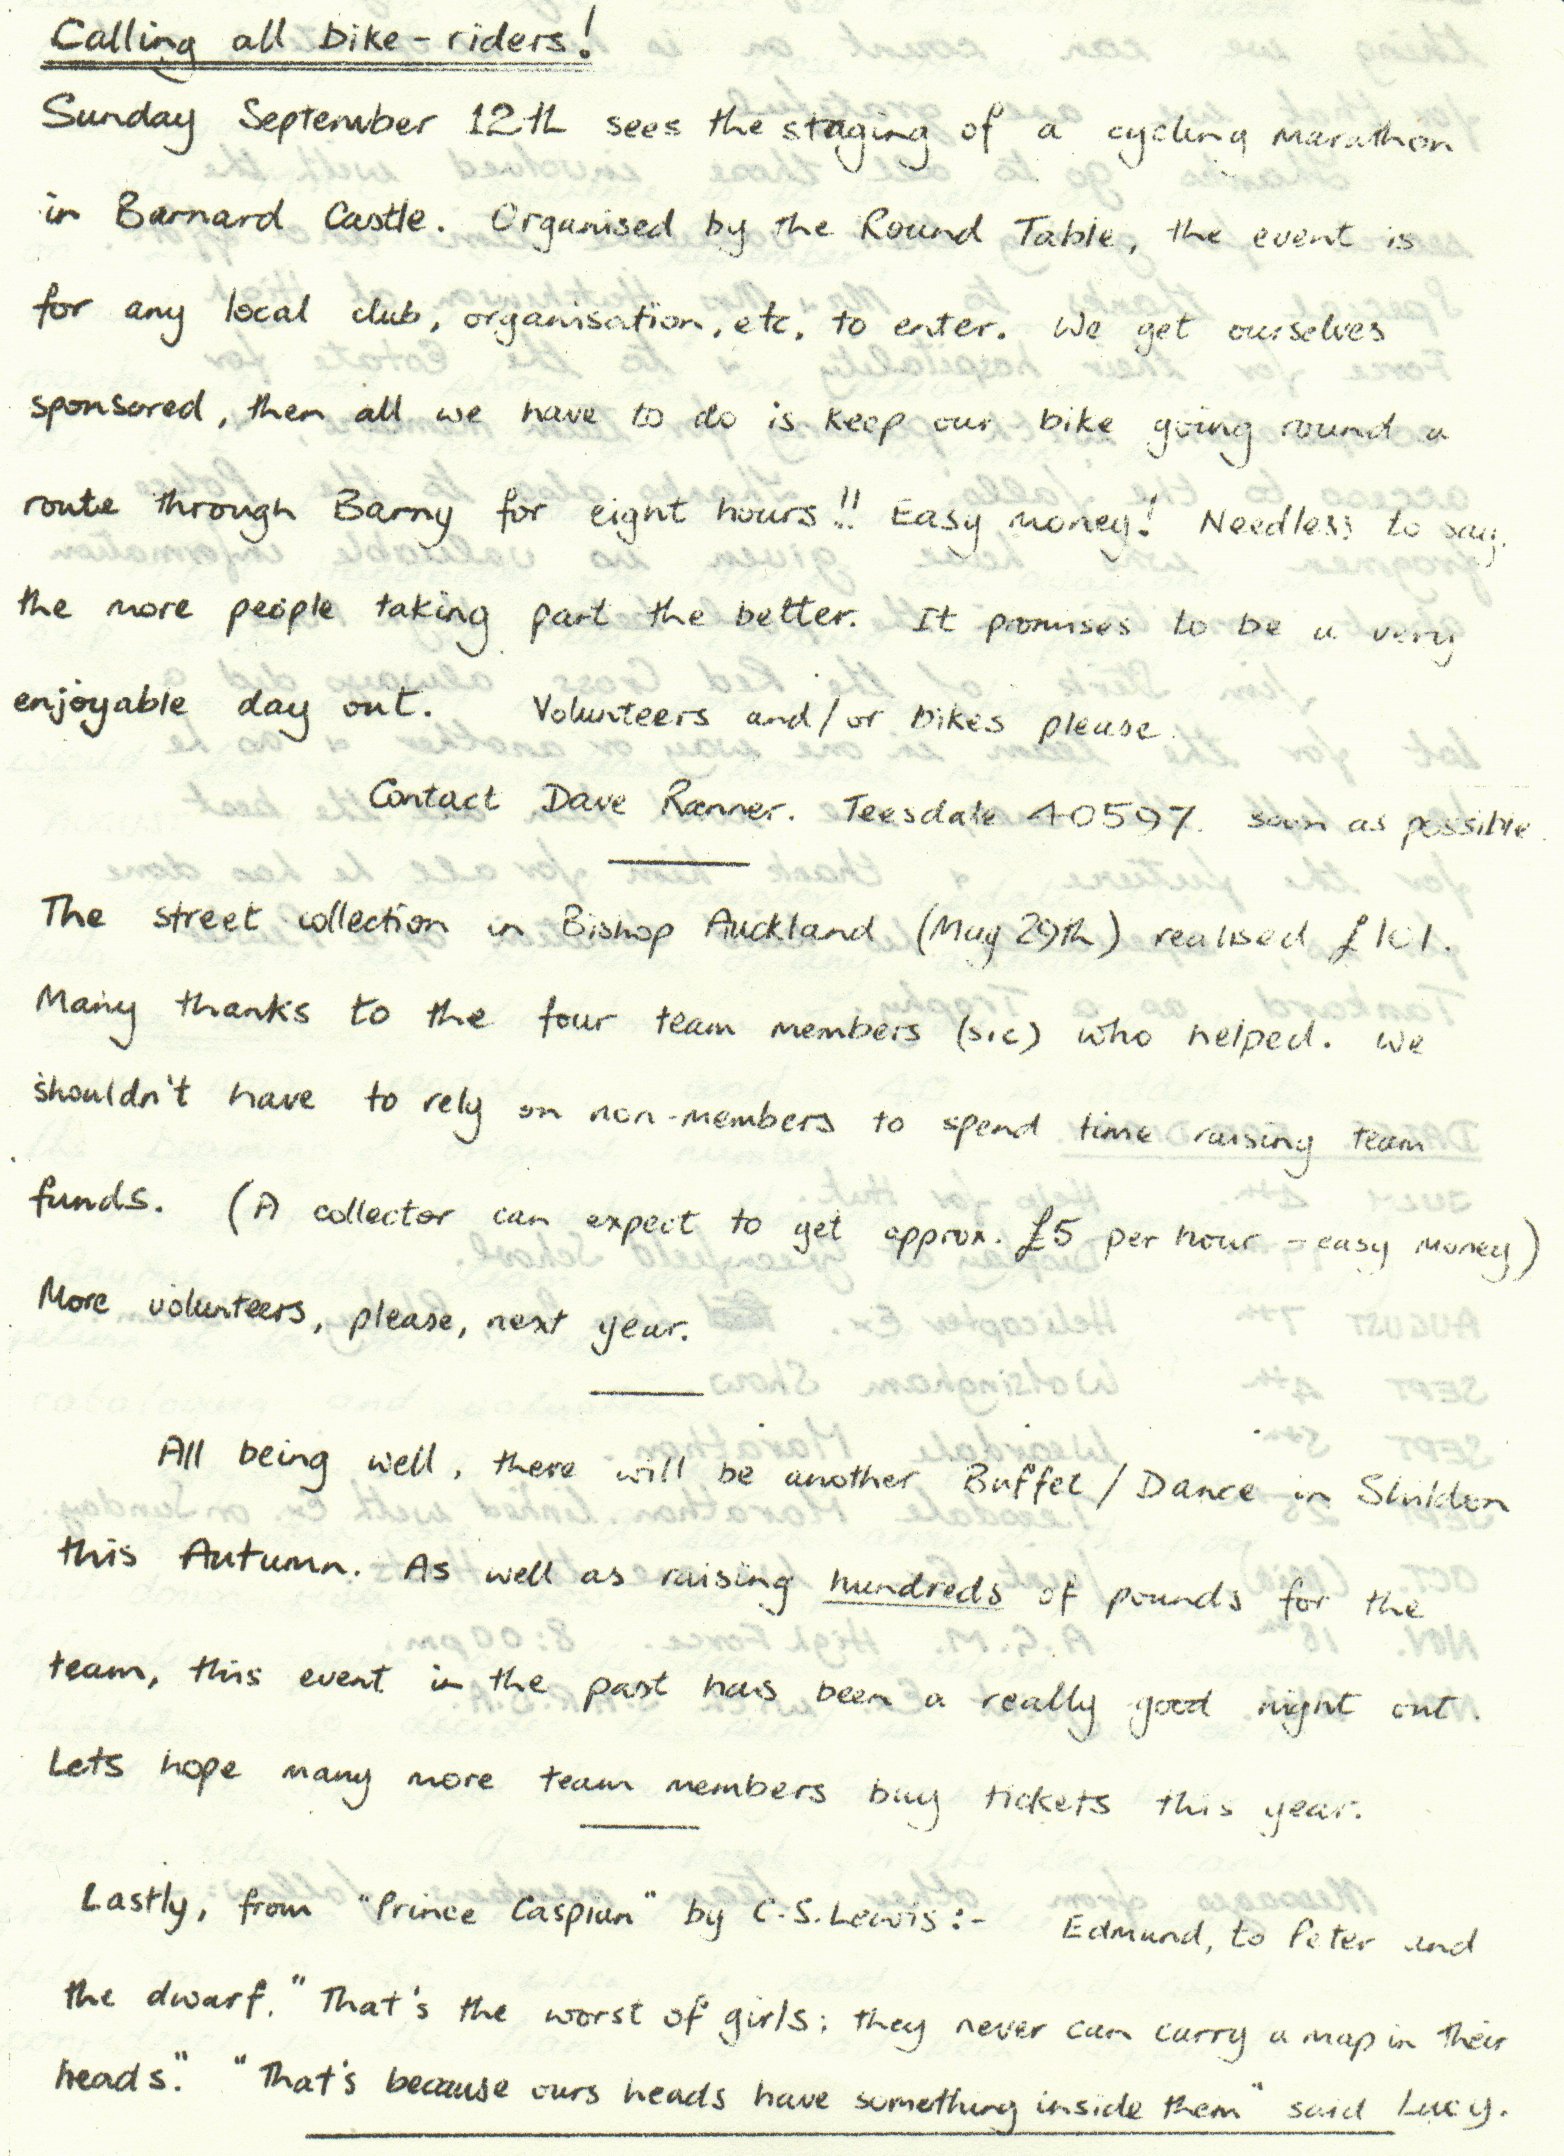 Calling all bike-riders!
Sunday September 12th sees the staging of a cycling marathon
in Barnard Castle. Organised by the Round Table, the event is
for any local club, organisation, etc. to enter. We get ourselves
sponsored, then all we have to do is keep our bike going round a
route through Barny for eight hours!! Easy money! Needless to say,
the more people taking part the better. It promises to be a very
enjoyable day out. Volunteers and/or bikes please.
Contact Dave Ranner. Teesdale 40597. soon as possible.
The street collection in Bishop Auckland (May 29th) realised £101.
Many thanks to the four team members (sic) who helped. We
shouldn't have to rely on non-members to spend time raising team
funds. (A collector can expect to get approx. £5 per hour - easy money)
More volunteers, please, next year.
All being well, there will be another Buffet/Dance in Shildon
this Autumn. As well as raising hundreds of pounds for the
team, this event in the past has been a really good night out.
Lets hope many more team members buy tickets this year.
Lastly, from "Prince Caspian" by C.S. Lewis:- Edmund, to Peter and
the dwarf. "That's the worst of girls; they never can carry a map in their
heads." "That's because ours heads have something inside them" said Lucy.